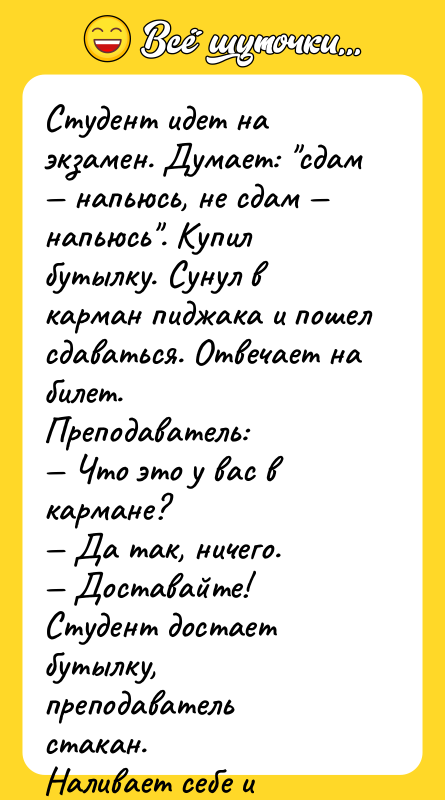 Всё шуточки...
Студент идет на
экзамен. Думает: "сдам
— напьюсь, не сдам —
напьюсь". Купил
бутылку. Сунул в
карман пиджака и пошел
сдаваться. Отвечает на
билет.
Преподаватель:
— Что это у вас в
кармане?
— Да так, ничего.
— Доставайте!
Студент достает
бутылку,
преподаватель
стакан.
Наливает себе и